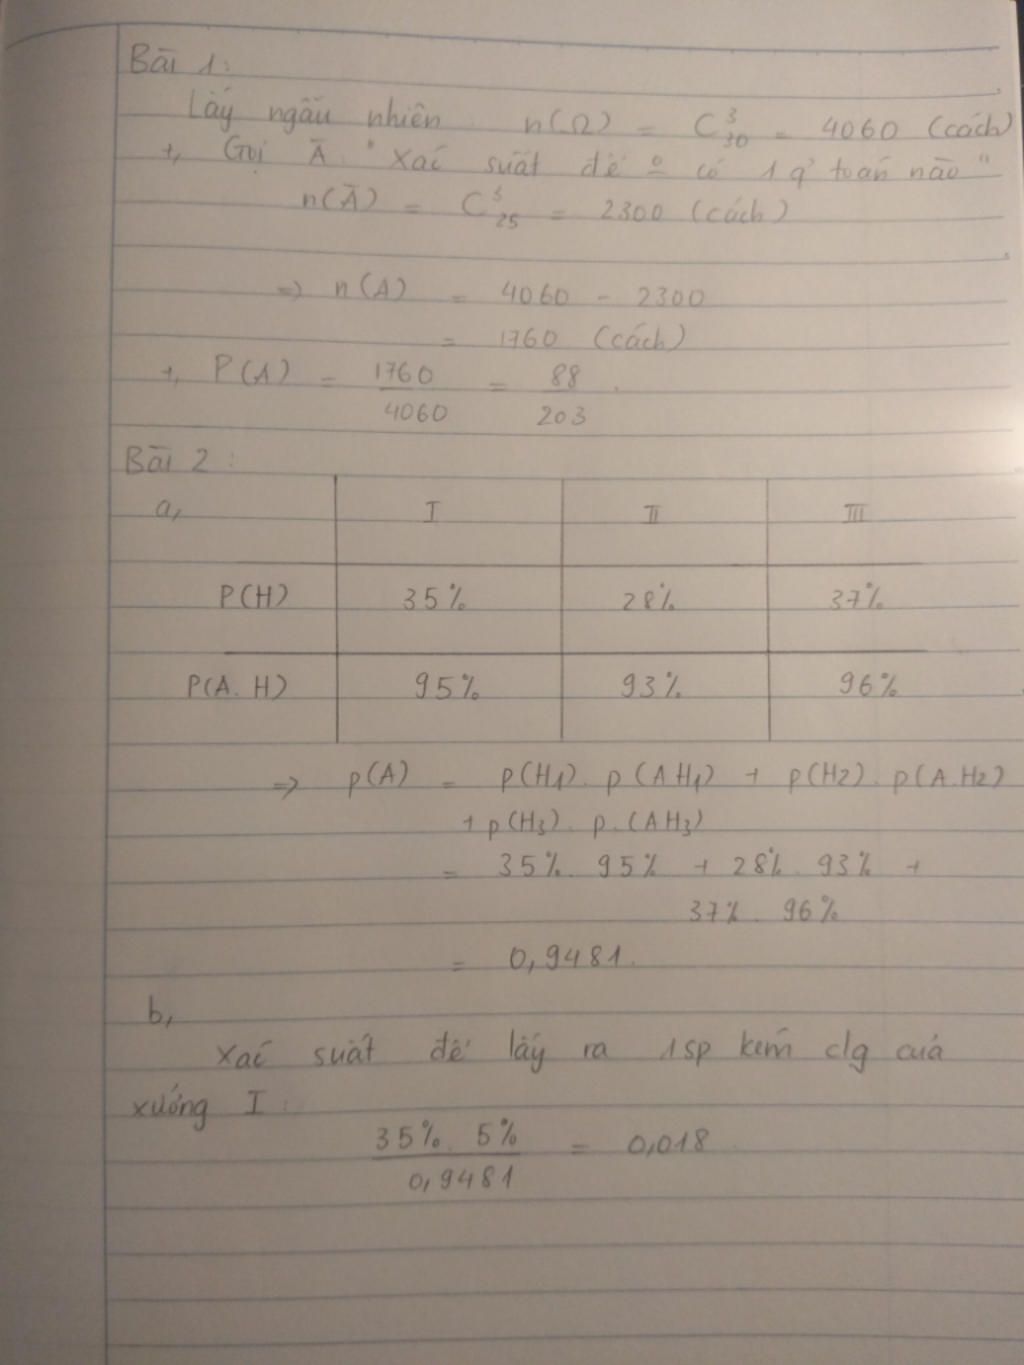 Bài 1:
Lấy ngẫu nhiên n(Ω) = C³₃₀ = 4060 (cách)
+, Gọi Ā " Xác suất để o có 1 q' toán nào "
n(Ā) = C³₂₅ = 2300 (cách)
=> n(A) = 4060 - 2300
= 1760 (cách)
+, P(A) = 1760/4060 = 88/203.
Bài 2:
a, I II III
P(H) 35% 28% 37%
P(A.H) 95% 93% 96%
=> p(A) = p(H1). p(AH1) + p(H2). p(A.H2)
+ p(H3). p.(AH3)
= 35%. 95% + 28%. 93% +
37%. 96%
= 0,9481.
b,
Xác suất để lấy ra 1sp kém clg của
xưởng I:
35%. 5%/0,9481 = 0,018.